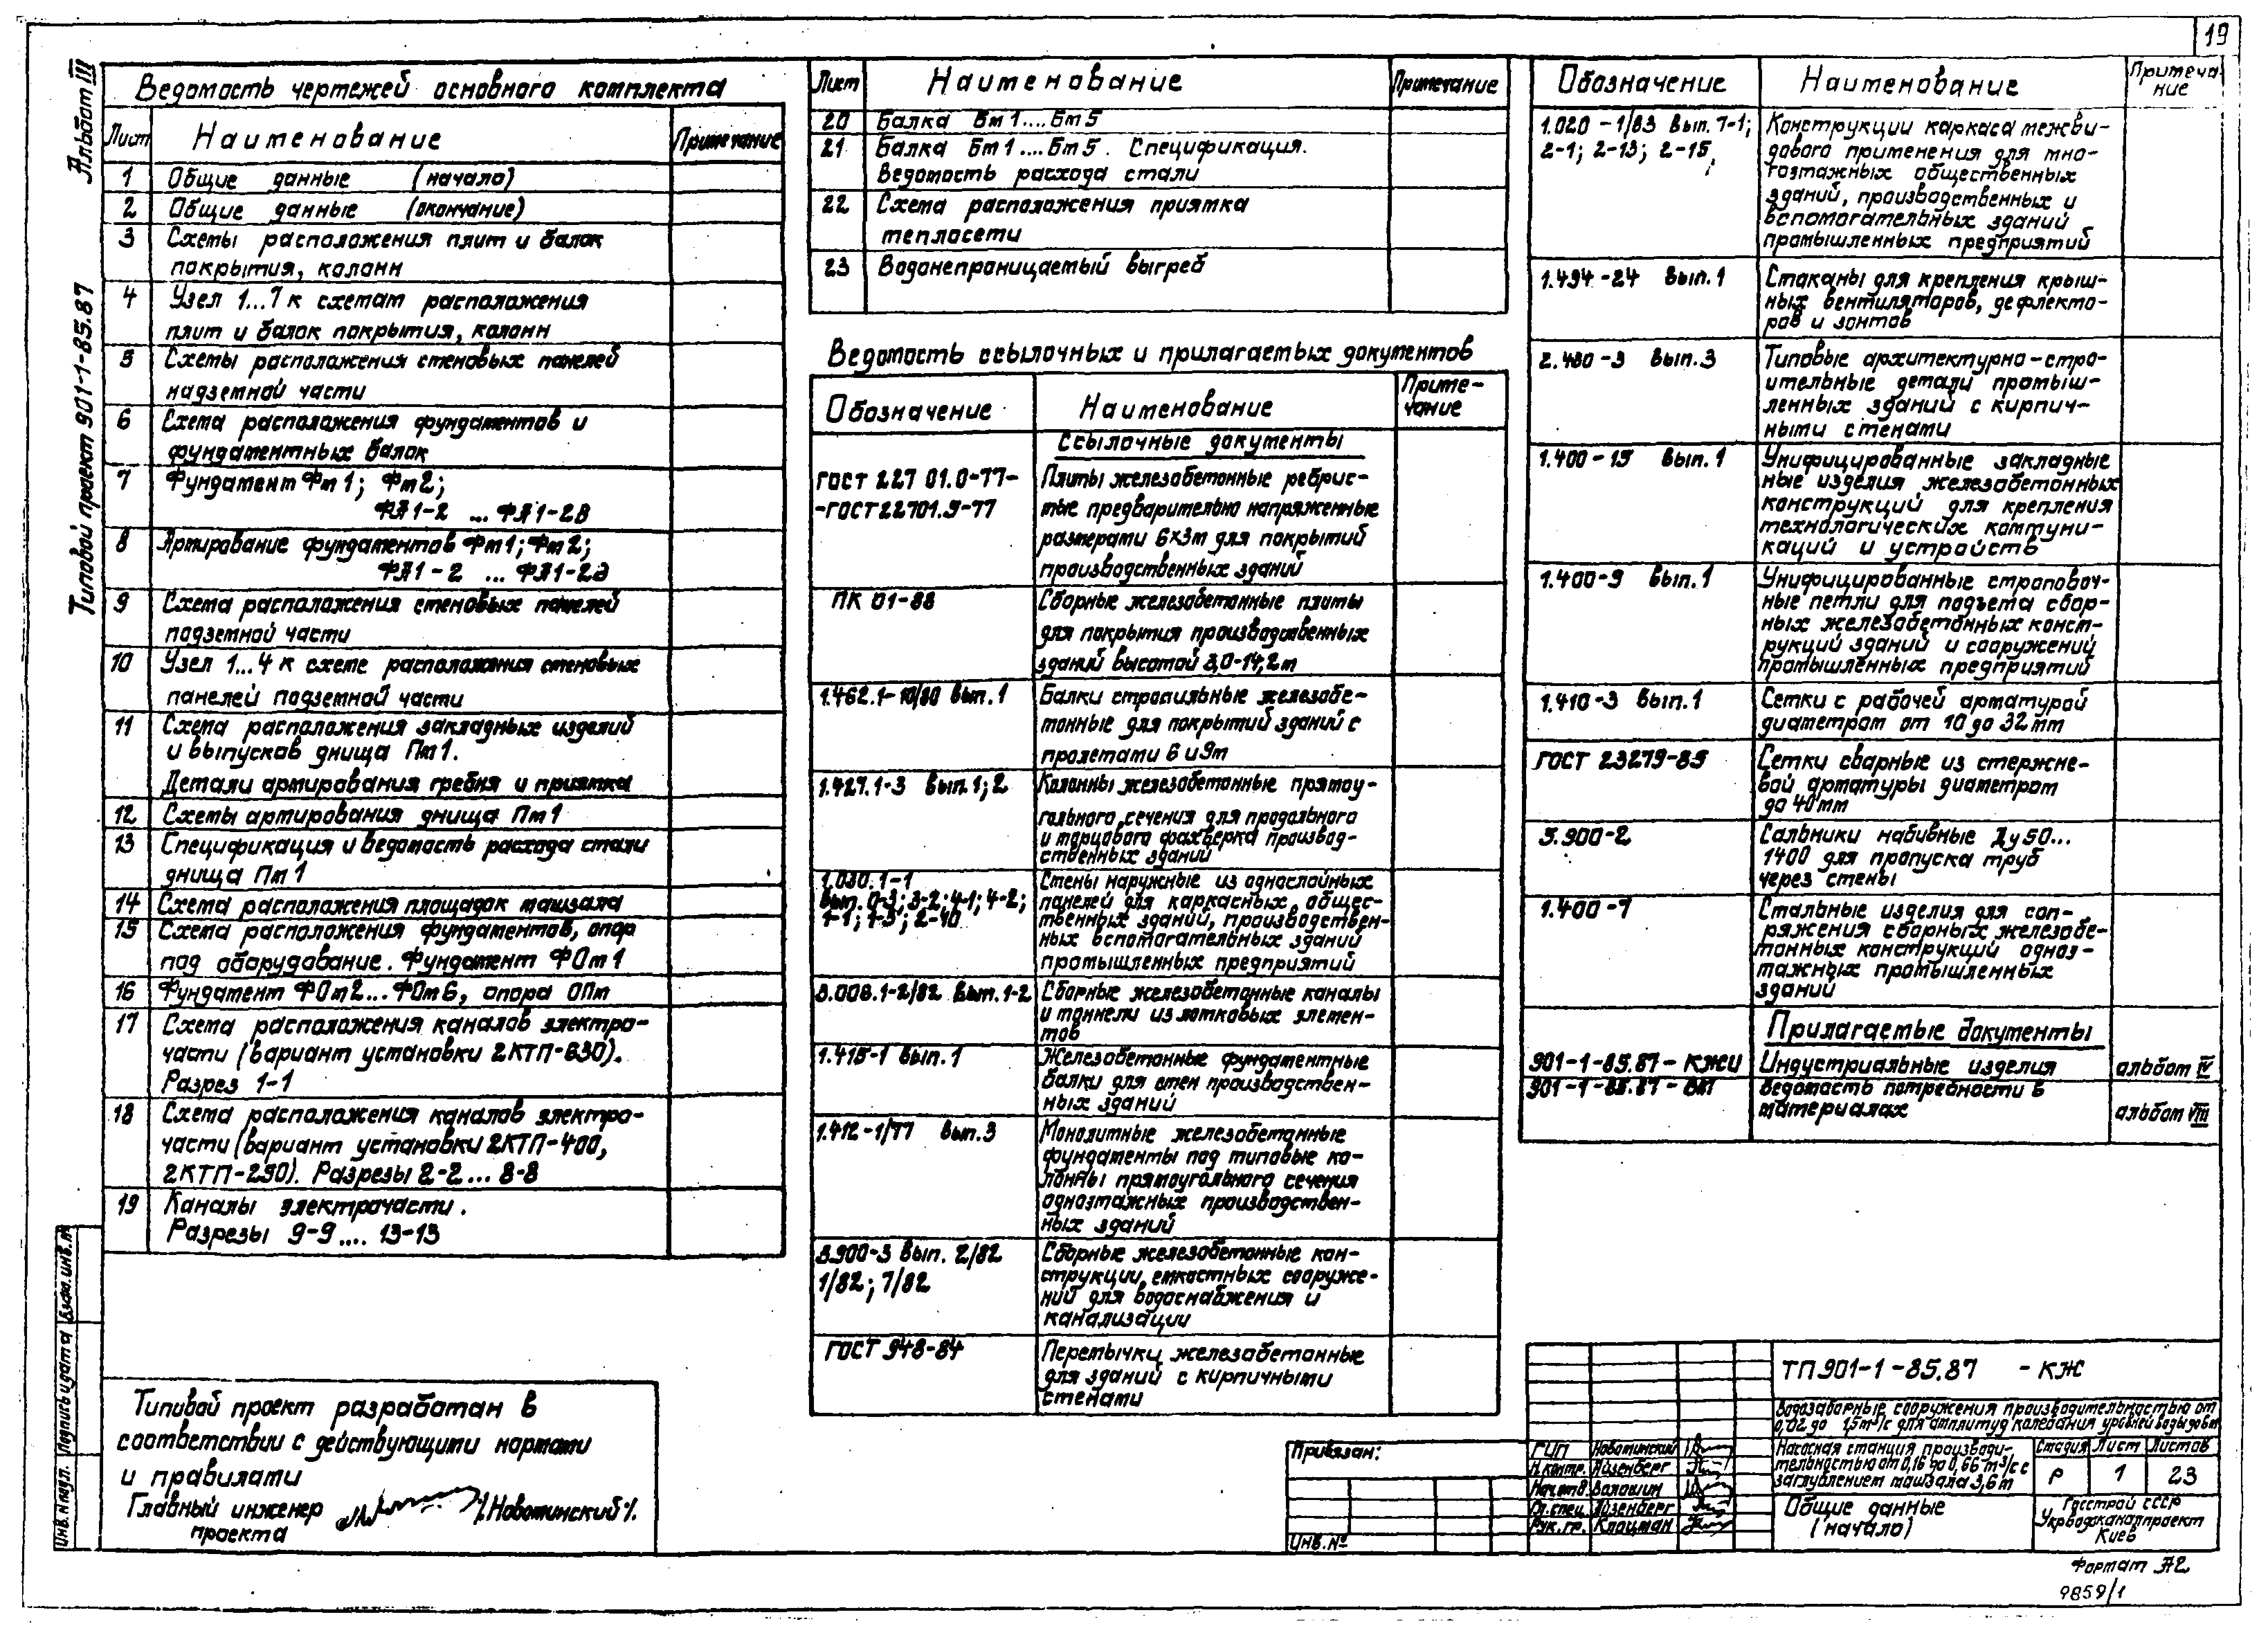 19
Альбом III
Типовой проект 901-1-85.87
Ведомость чертежей основного комплекта
Лист Наименование Примечание
1 Общие данные (начало)
2 Общие данные (окончание)
3 Схемы расположения плит и балок
покрытия, колонн
4 Узел 1...7 к схемам расположения
плит и балок покрытия, колонн
5 Схемы расположения стеновых панелей
надземной части
6 Схема расположения фундаментов и
фундаментных балок
7 Фундамент Фм1; Фм2;
ФЛ1-2 ... ФЛ1-28
8 Армирование фундаментов Фм1; Фм2;
ФЛ1-2 ... ФЛ1-28
9 Схема расположения стеновых панелей
подземной части
10 Узел 1...4 к схеме расположения стеновых
панелей подземной части
11 Схема расположения закладных изделий
и выпусков днища Пм1.
Детали армирования гребня и приямка
12 Схемы армирования днища Пм1
13 Спецификация и ведомость расхода стали
днища Пм1
14 Схема расположения площадок машзала
15 Схема расположения фундаментов, опор
под оборудование. Фундамент ФОм1
16 Фундамент ФОм2...ФОм6, опора ОПм
17 Схема расположения каналов электро-
части (вариант установки 2КТП-630).
Разрез 1-1
18 Схема расположения каналов электро-
части (вариант установки 2КТП-400,
2КТП-250). Разрезы 2-2... 8-8
19 Каналы электрочасти.
Разрезы 9-9.... 13-13
Типовой проект разработан в
соответствии с действующими нормами
и правилами
Главный инженер /Новотинский/.
проекта
Инв. N подл. Подпись и дата Взам. инв. N
Лист Наименование Примечание
20 Балка Бм1....Бм5
21 Балка Бм1....Бм5. Спецификация.
Ведомость расхода стали
22 Схема расположения приямка
теплосети
23 Водонепроницаемый выгреб
Ведомость ссылочных и прилагаемых документов
Обозначение Наименование Приме-
чание
Ссылочные документы
ГОСТ 22701.0-77- Плиты железобетонные ребрис-
-ГОСТ 22701.9-77 тые предварительно напряженные
размерами 6×3м для покрытий
производственных зданий
ПК 01-88 Сборные железобетонные плиты
для покрытия производственных
зданий высотой 3,0-14,2м
1.462.1-10/80 вып. 1 Балки стропильные железобе-
тонные для покрытий зданий с
пролетами 6 и 9м
1.427.1-3 вып. 1; 2 Колонны железобетонные прямоу-
гольного сечения для продольного
и торцового фахверка производ-
ственных зданий
1.030.1-1 Стены наружные из однослойных
вып. 0-3; 3-2; 4-1; 4-2; панелей для каркасных, общес-
1-1; 1-3; 2-10 твенных зданий, производствен-
ных вспомогательных зданий
промышленных предприятий
3.006.1-2/82 вып. 1-2 Сборные железобетонные каналы
и тоннели из лотковых элемен-
тов
1.415-1 вып. 1 Железобетонные фундаментные
балки для стен производствен-
ных зданий
1.412-1/77 вып. 3 Монолитные железобетонные
фундаменты под типовые ко-
лонны прямоугольного сечения
одноэтажных производствен-
ных зданий
3.900-3 вып. 2/82 Сборные железобетонные кон-
1/82; 7/82 струкции емкостных сооруже-
ний для водоснабжения и
канализации
ГОСТ 948-84 Перемычки железобетонные
для зданий с кирпичными
стенами
Обозначение Наименование Примеча-
ние
1.020-1/83 вып. 7-1; Конструкции каркаса межви-
2-1; 2-13; 2-15, дового применения для мно-
гоэтажных общественных
зданий, производственных и
вспомогательных зданий
промышленных предприятий
1.494-24 вып. 1 Стаканы для крепления крыш-
ных вентиляторов, дефлекто-
ров и зонтов
2.430-3 вып. 3 Типовые архитектурно-стро-
ительные детали промыш-
ленных зданий с кирпич-
ными стенами
1.400-15 вып. 1 Унифицированные закладные
ные изделия железобетонных
конструкций для крепления
технологических коммуни-
каций и устройств
1.400-9 вып. 1 Унифицированные строповоч-
ные петли для подъема сбор-
ных железобетонных конст-
рукций зданий и сооружений
промышленных предприятий
1.410-3 вып. 1 Сетки с рабочей арматурой
диаметром от 10 до 32мм
ГОСТ 23279-85 Сетки сварные из стержне-
вой арматуры диаметром
до 40мм
5.900-2 Сальники набивные Ду50...
1400 для пропуска труб
через стены
1.400-7 Стальные изделия для соп-
ряжения сборных железобе-
тонных конструкций одноэ-
тажных промышленных
зданий
Прилагаемые документы
901-1-85.87-КЖИ Индустриальные изделия альбом IV
901-1-85.87-ВМ Ведомость потребности в
материалах альбом VIII
Привязан:
Инв. №
ТП 901-1-85.87 -КЖ
Водозаборные сооружения производительностью от
0,02 до 1,5м³/с для амплитуд колебания уровней воды до 6м
ГИП Новотинский
Н.контр. Айзенберг
Нач.отд. Волошин
Гл.спец. Айзенберг
Рук.гр. Клоцман
Насосная станция производи-
тельностью от 0,16 до 0,66 м³/с с
заглублением машзала 3,6м
Стадия Лист Листов
Р 1 23
Общие данные
(начало)
Госстрой СССР
Укрводоканалпроект
Киев
Формат А2
9859/1